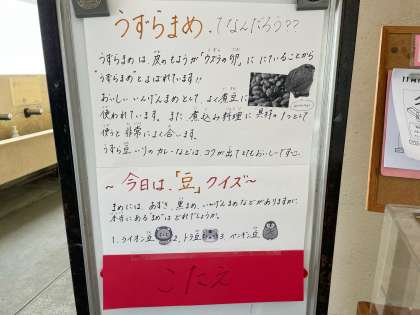 うずらまめ、てなんだろう??
うずらまめ は、皮のもようが "ウズラの卵" に にていることから
"うずらまめ" と よばれています!!
おいしい いんげんまめとして、よく煮豆に
使われています。また 煮込み料理に 具材の1つとして
使うと 非常に よく合います。
うずら豆 入りの カレーなどは、コクが出て とてもおいしいですよ。
～今日は、「豆」クイズ～
まめには、あずき、黒まめ、いんげんまめなどがありますが、
本当にある"まめ"は どれでしょうか。
1. ライオン豆 2. トラ豆 3. ペンギン豆
こたえ